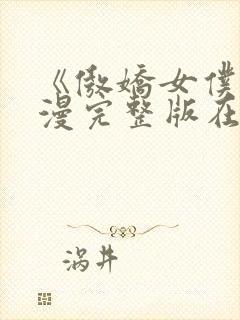 《傲嬌女僕
漫完整版在
涡井